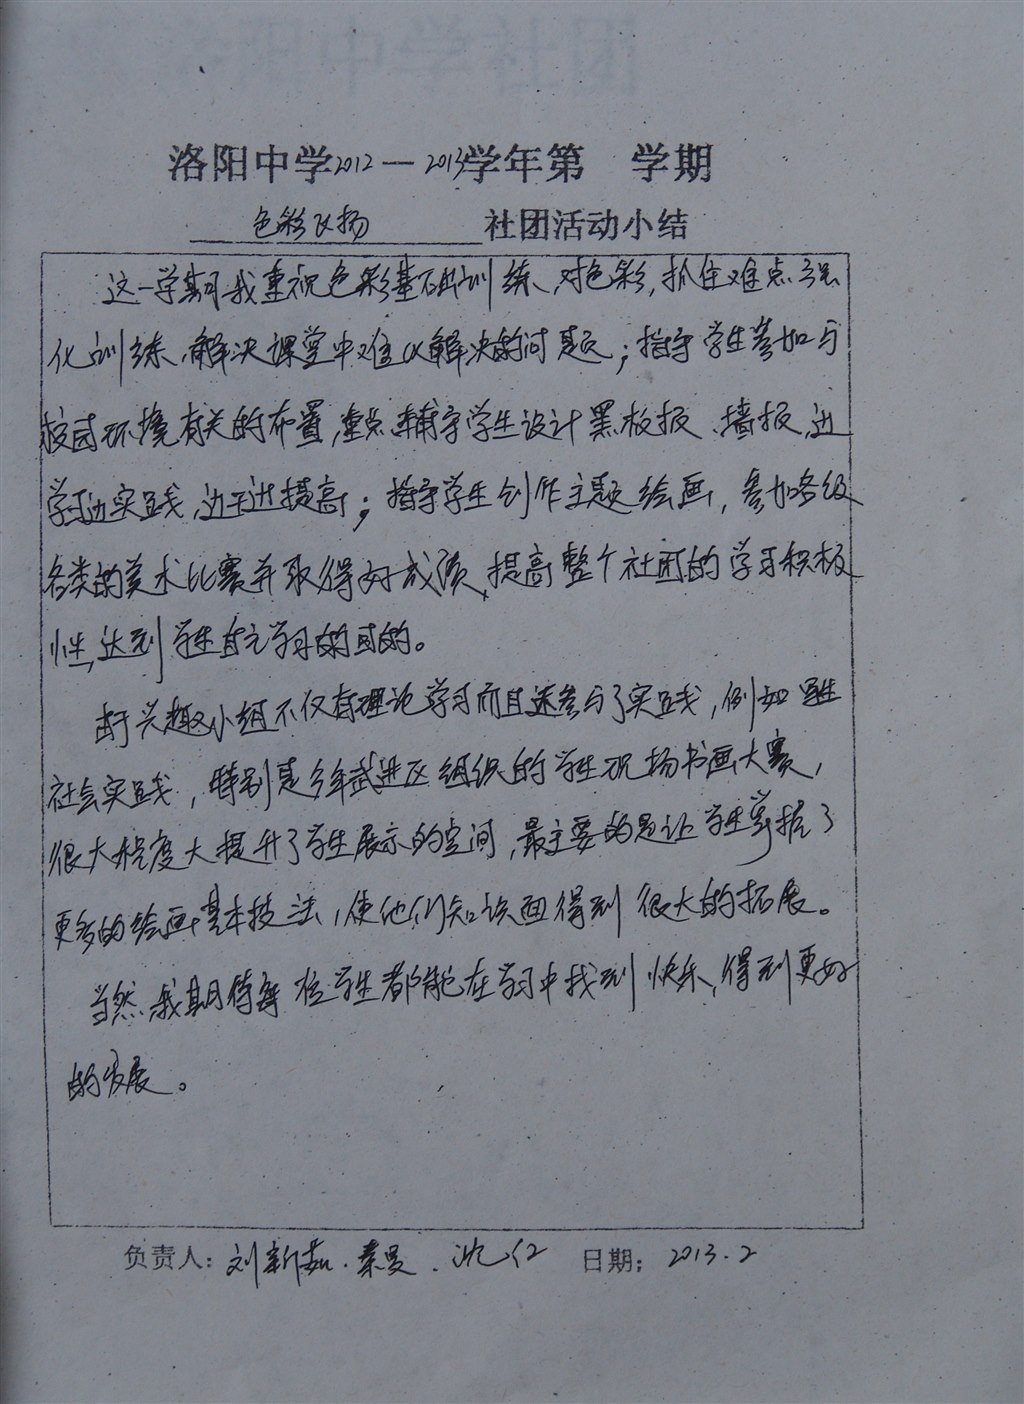 洛阳中学2012—2013学年第 学期
色彩飞扬 社团活动小结
这一学期我重视色彩基础训练、对色彩,抓住难点强
化训练,解决课堂中难以解决的问题;指导学生参加与
校园环境有关的布置,重点辅导学生设计黑板报、墙报,边
学习边实践,边干边提高;指导学生创作主题绘画,参加各级
各类的美术比赛并取得好成绩,提高整个社团的学习积极
性,达到学生自主学习的目的。
由于兴趣小组不仅有理论学习而且还参与了实践,例如
社会实践,特别是今年武进区组织的学生现场书画大赛,
很大程度大提升了学生展示的空间,最主要的是让学生掌握了
更多的绘画基本技法,使他们知识面得到很大的拓展。
当然我期待每位学生都能在学习中找到快乐,得到更好
的发展。
负责人:刘新茹.秦曼.沈 日期:2013.2